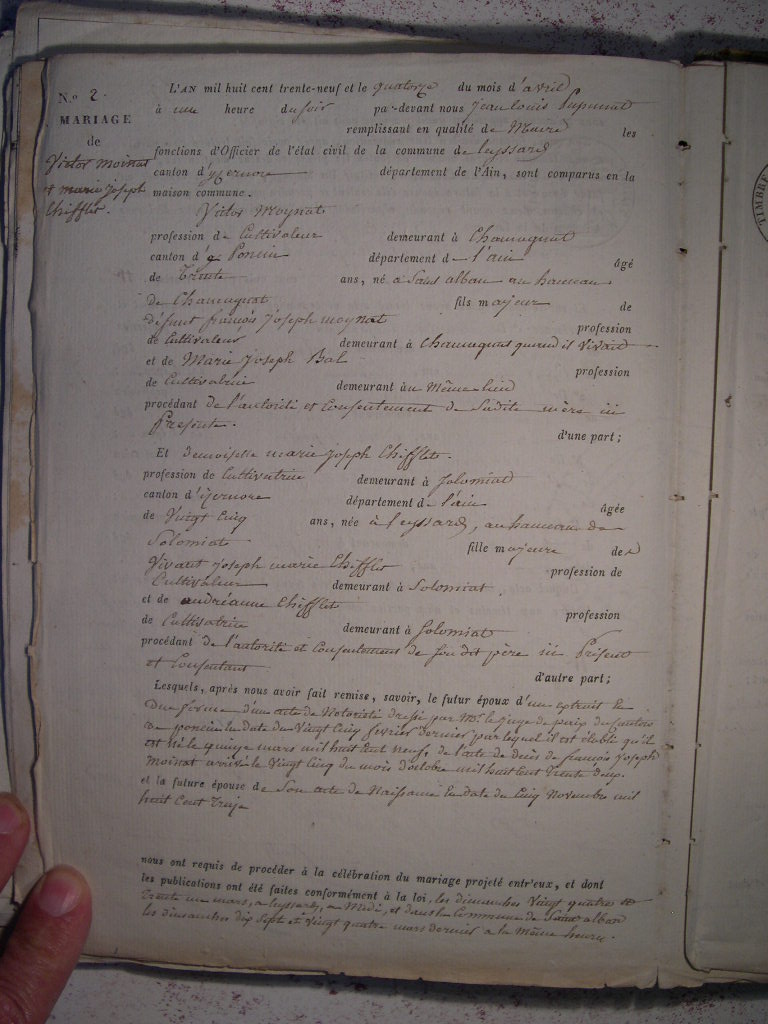 N.o 2.
MARIAGE
de
Victor moinat
et marie joseph
Chifflet.
L'AN mil huit cent trente-neuf et le quatorze du mois d'avril
à une heure du soir par-devant nous Jean Louis
remplissant en qualité de Maire les
fonctions d'Officier de l'état civil de la commune de leyssard
canton d'yzernore département de l'Ain, sont comparus en la
maison commune.
Victor Moynat
profession de Cultivateur demeurant à Chamagnat
canton de Poncin département de l'ain
âgé
de Trente ans, né à Saint alban au hameau
de Chamagnat fils majeur de
défunt françois joseph moynat
profession
de Cultivateur demeurant à Chamagnat quand il vivait
et de Marie joseph Bal
profession
de Cultivatrice demeurant au Même lieu
procédant de l'autorité et Consentement de Sadite mère ici
Présente.
d'une part;
Et demoiselle marie joseph Chifflet.
profession de Cultivatrice demeurant à Solomiat
canton d'izernore département de l'ain
âgée
de Vingt Cinq ans, née à leyssard, au hameau de
Solomiat fille majeure de
Vivant joseph marie Chifflet
profession de
Cultivateur demeurant à Solomiat.
et de andréanne Chifflet
profession
de Cultivatrice demeurant à Solomiat
procédant de l'autorité et Consentement de Son dit père ici Présent
et Consentant
d'autre part;
Lesquels, après nous avoir fait remise, savoir, le futur époux d'une extrait en
Due forme d'un acte de Notoriété dressé par Mr. le juge de paix du Canton
de poncin En date du Vingt Cinq fevrier dernier par lequel il est établi qu'il
est né le quinze mars mil huit Cent neuf, de l'acte de décès de françois Joseph
moinat arrivé le Vingt Cinq du mois d'octobre mil huit Cent Trente deux.
et la future épouse de Son acte de Naissance En date du Cinq Novembre mil
huit Cent Treize
nous ont requis de procéder à la célébration du mariage projeté entr'eux, et dont
les publications ont été faites conformément à la loi, les dimanches Vingt quatre et
Trente un mars, a leyssard, a Midi, et dans la Commune de Saint alban
les dimanches dix Sept et Vingt quatre mars dernier a la même heure.
TIMBRE